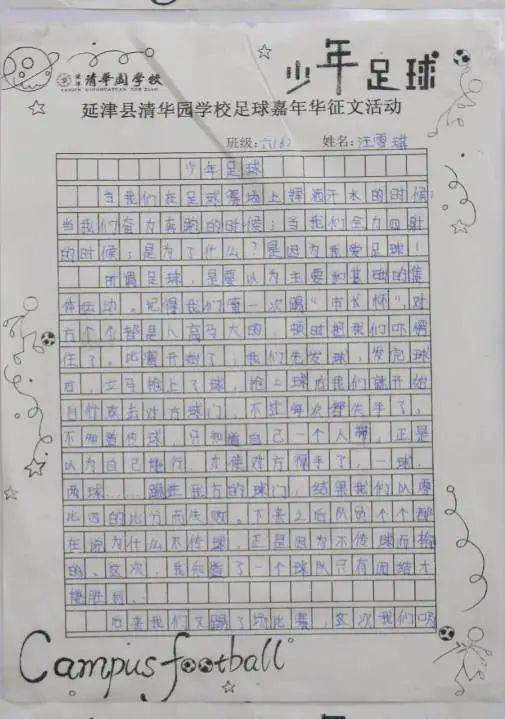 清华园学校
少年足球
延津县清华园学校足球嘉年华征文活动
班级:六(6) 姓名:汪雪琪
少年足球
当我们在足球赛场上挥洒汗水的时候;
当我们奋力奔跑的时候;当我们全力四射
的时候;是为了什么?是因为我爱足球!
所谓足球,是要以为主要和基础的集
体运动。记得我们第一次踢“市长杯”,对
方个个都是人高马大的,顿时把我们吓倒
住了。比赛开始了,我们先发球,发完球
后,立马抢上了球,抢上球后我们就开始
自行攻击对方球门,不过每次都失手了,
不知道传球,只知道自己一个人带,正是
以为自己能行,才使对方得手了,一球,
两球……踢进我方的球门,结果我们以零
比四的比分而失败。下来之后队员个个都
在说为什么不传球,正是因为不传球而输
的。这次,我知道了一个球队只有团结才
能胜利。
后来我们又踢了场比赛,这次我们吸
Campus football